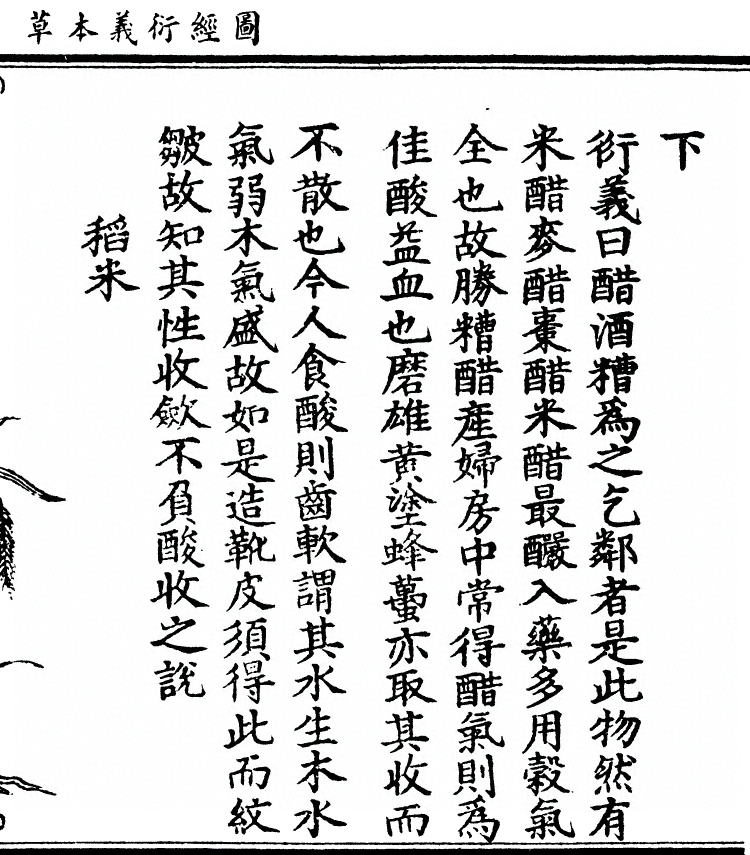 圖經衍義本草
下
衍義曰醋酒糟爲之乞鄰者是此物然有
米醋麥醋棗醋米醋最釅入藥多用穀氣
全也故勝糟醋産婦房中常得醋氣則爲
佳酸益血也磨雄黃塗蜂蠆亦取其收而
不散也今人食酸則齒軟謂其水生木水
氣弱木氣盛故如是造靴皮須得此而紋
皺故知其性收歛不負酸收之說
稻米